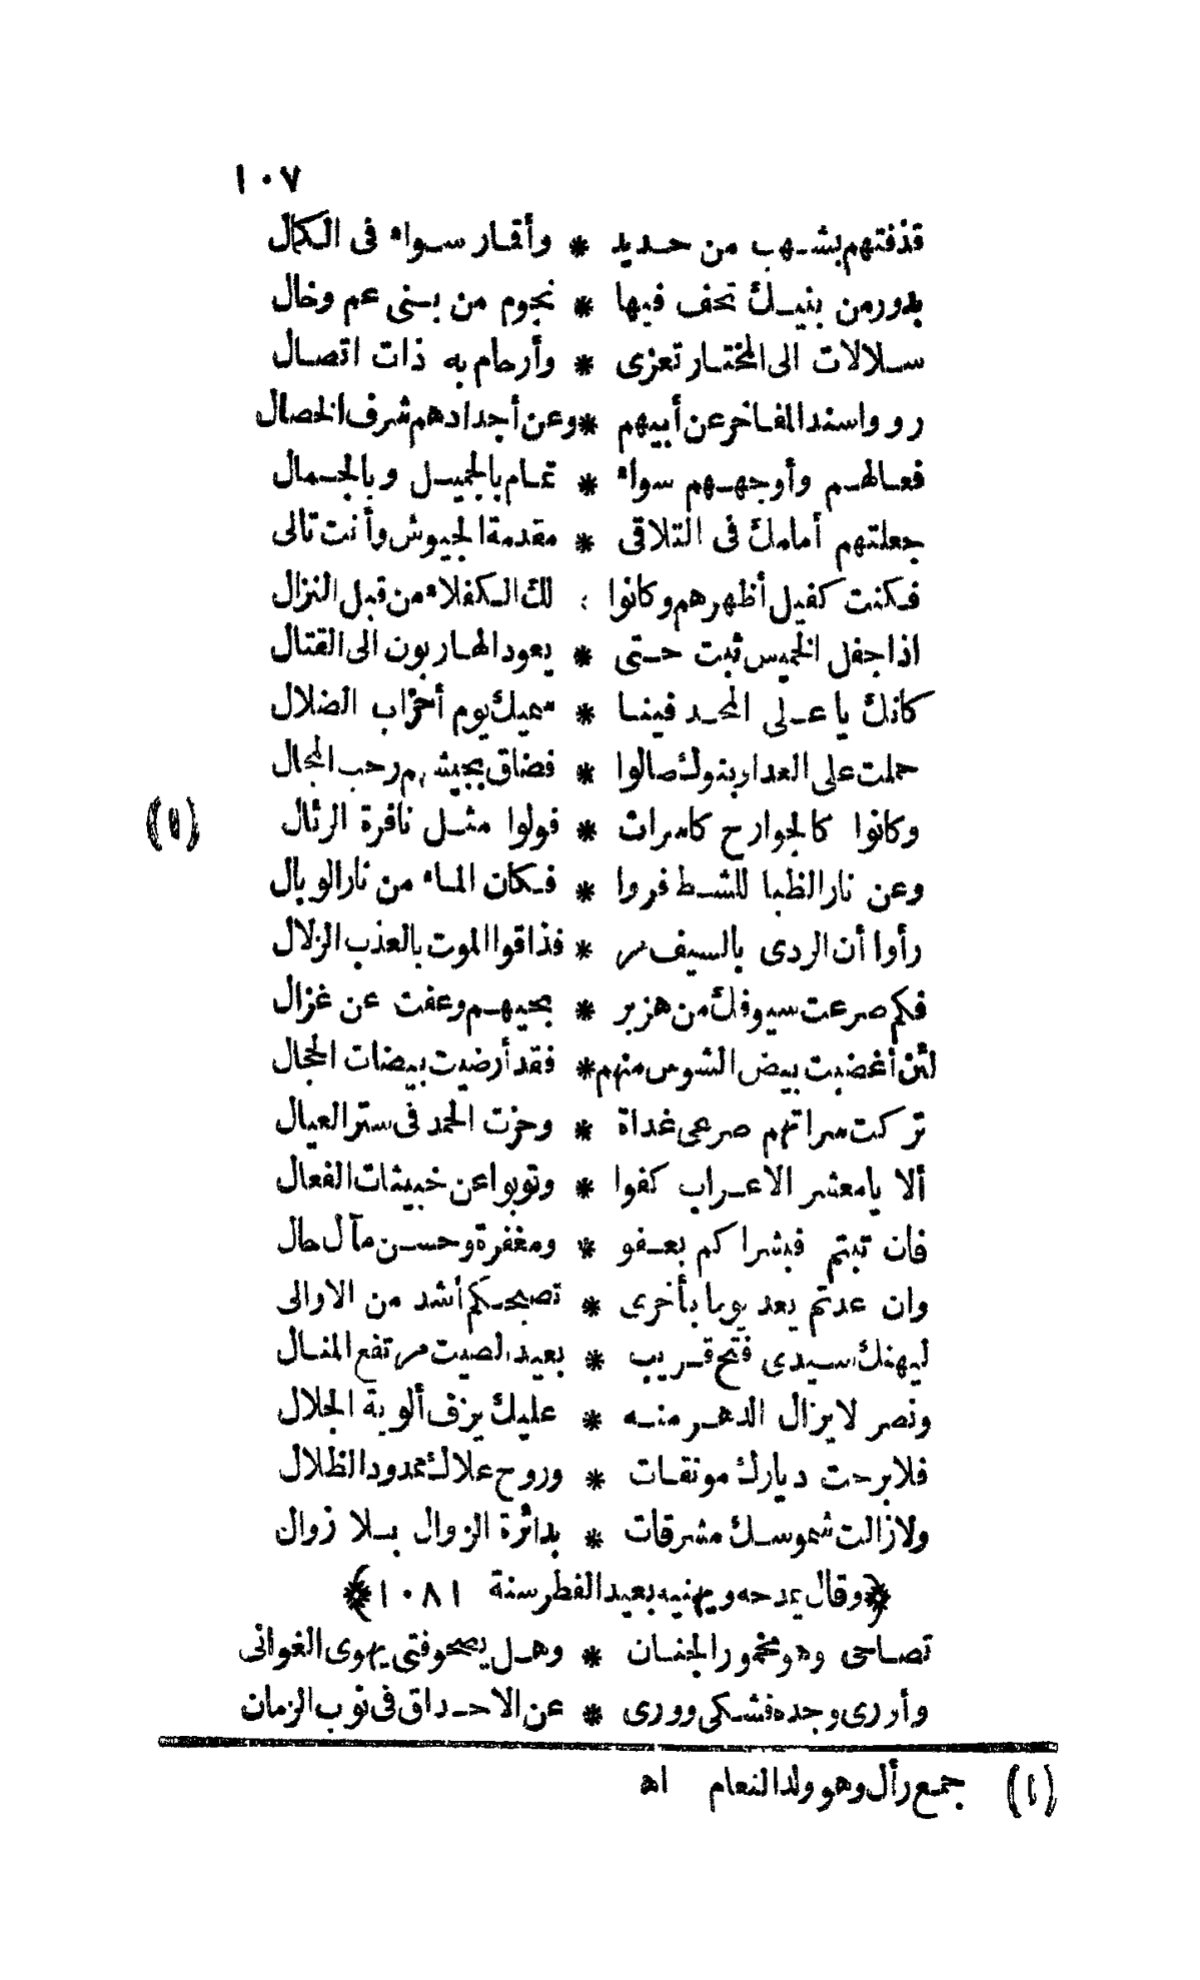 ١٠٧
قذفتهم بشهب من حديد * وأقمار سواء فى الكمال
بدور من بنيك تحف فيها * نجوم من بنى عم وخال
سلالات الى المختار تعزى * وأرحام به ذات اتصال
رووا سند المفاخر عن أبيهم * وعن أجدادهم شرف الخصال
فعالهم وأوجههم سواء * تمام بالجميل وبالجمال
جعلتهم أمامك فى التلاقى * مقدمة الجيوش وأنت تالى
فكنت كفيل أظهرهم وكانوا : لك الكفلاء من قبل النزال
اذا جفل الخميس ثبت حتى * يعود الهاربون الى القتال
كانك يا على المجد فينا * سميك يوم أحزاب الضلال
حملت على العدا وبنوك صالوا * فضاق بجيشهم رحب المجال
وكانوا كالجوارح كاسرات * فولوا مثل نافرة الرئال (١)
وعن نار الظبا للشط فروا * فكان الماء من نار الوبال
رأوا أن الردى بالسيف مر * فذاقوا الموت بالعذب الزلال
فكم صرعت سيوفك من هزبر * بحيهم وعفت عن غزال
لئن أغضبت بيض الشوس منهم * فقد أرضيت بيضات الحجال
تركت سراتهم صرعى غداة * وحزت الحمد فى ستر العيال
ألا يا معشر الاعراب كفوا * وتوبوا عن خبيثات الفعال
فان تبتم فبشراكم بعفو * ومغفرة وحسن مآل حال
وان عدتم بعد يوما بأخرى * تصبحكم أشد من الاوالى
ليهنك سيدى فتح قريب * بعيد الصيت مرتفع المنال
ونصر لا يزال الدهر منه * عليك يزف ألوية الجلال
فلا برحت ديارك مونقات * وروح علاك ممدود الظلال
ولا زالت شموسك مشرقات * بدائرة الزوال بلا زوال
﴿وقال يمدحه ويهنيه بعيد الفطر سنة ١٠٨١﴾
تصاحى وهو مخمور الجنان * وهل يصحو فتى يهوى الغوانى
وأررى وجده فشكى وورى * عن الاحداق فى نوب الزمان
(١) جمع رأل وهو ولد النعام اه